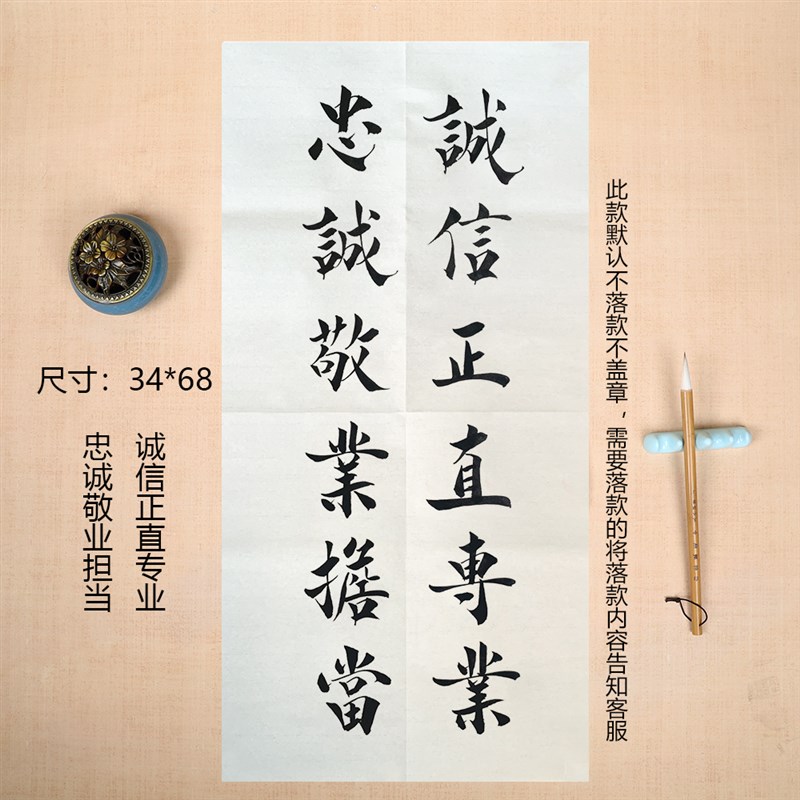 誠信正直專業
忠誠敬業擔當
尺寸：34*68
诚信正直专业
忠诚敬业担当
此款默认不落款不盖章，需要落款的将落款内容告知客服